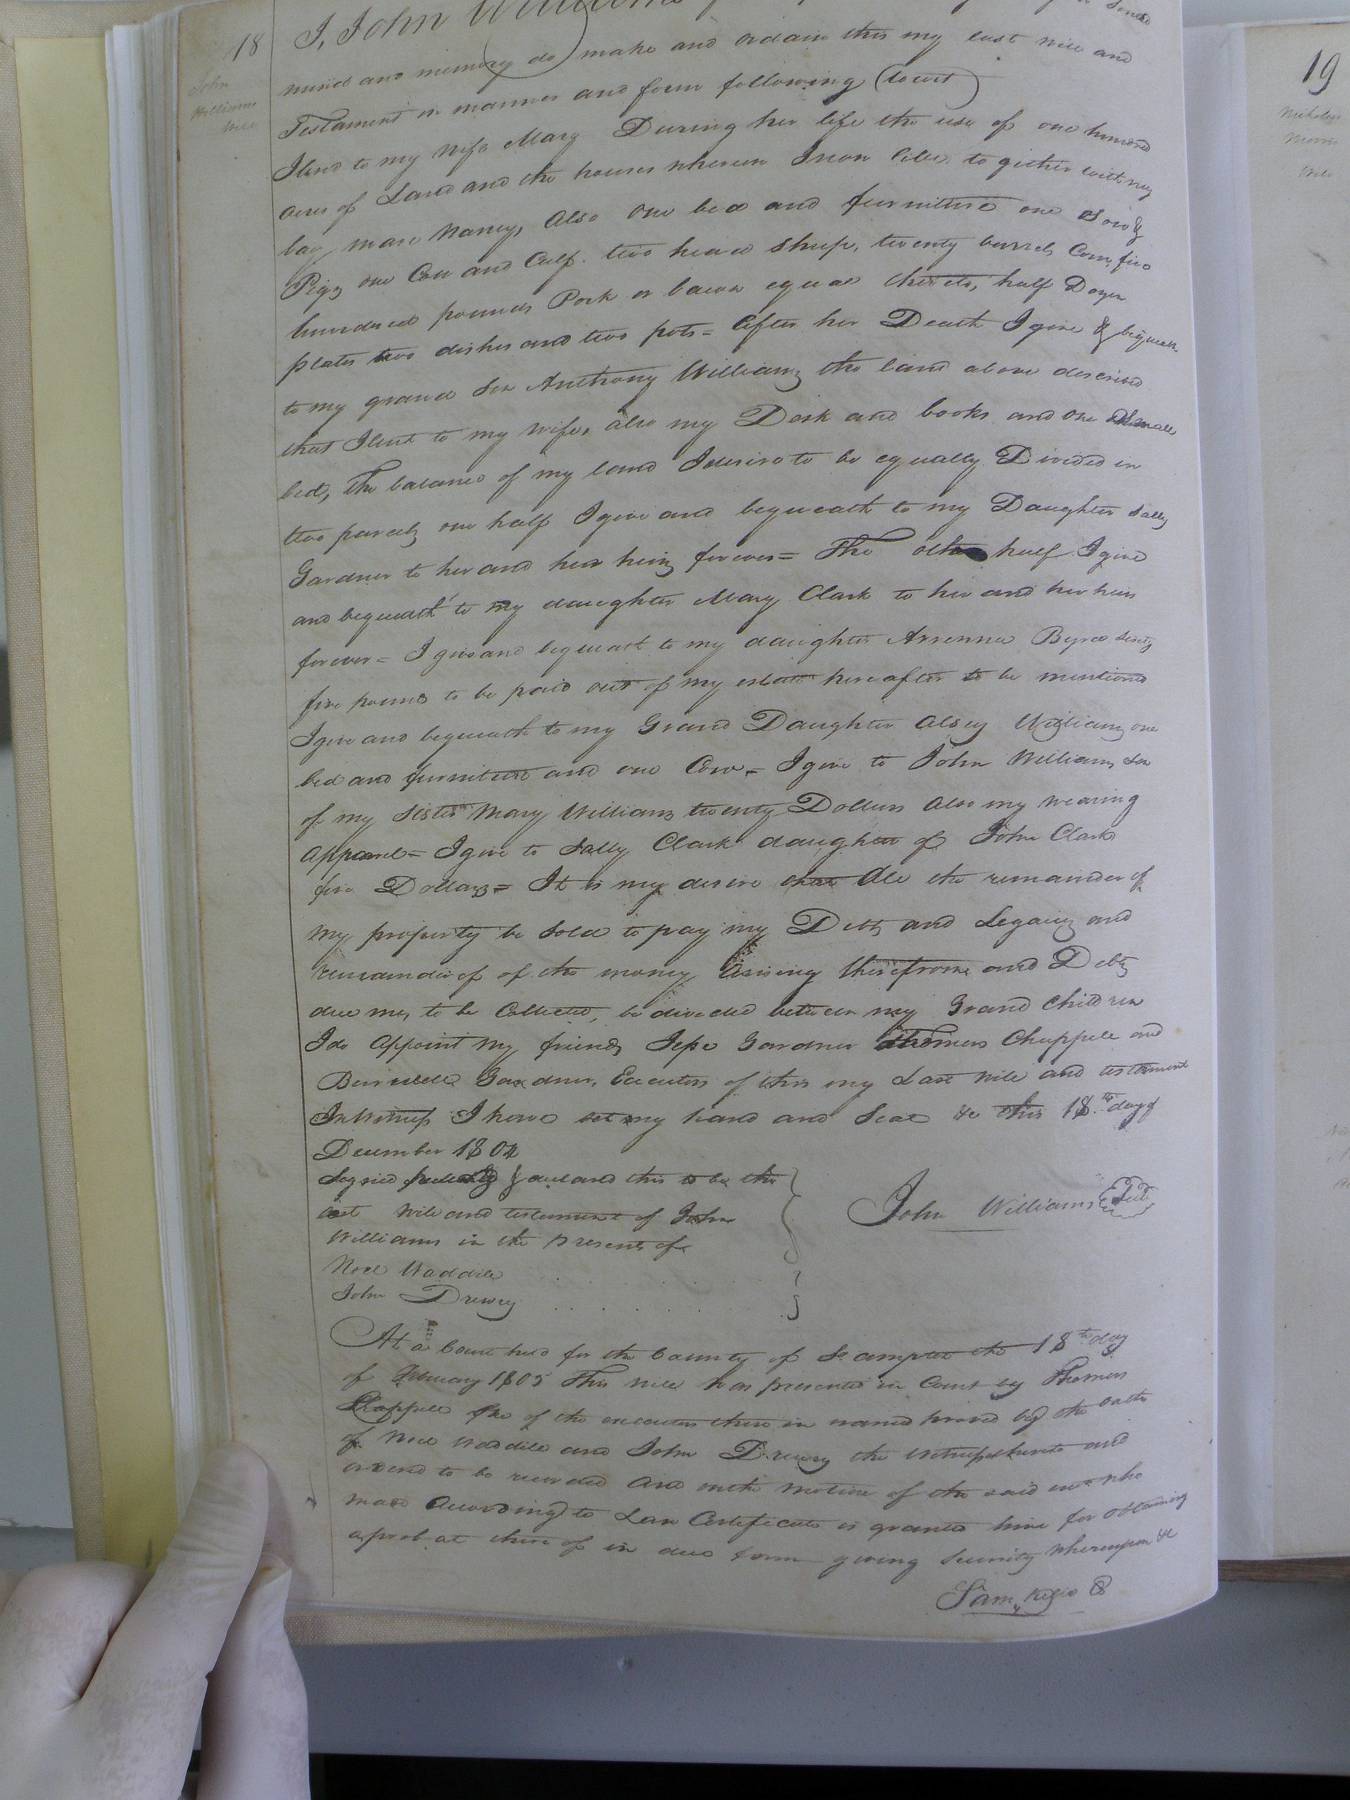 18
John
Williams
Will
I, John Williams
mind and memory do make and ordain this my last will and
Testament in manner and form following (towit)
I lend to my wife Mary During her life the use of one hundred
acres of Land and the houses wherein I now live to gether with my
bay mare Nancy, Also one bed and furniture one Sow &
Pigs one Cow and Calf. two head Sheep, twenty barrels Corn, five
hundred pounds Pork or bacon equal thereto, half Dozen
plates two dishes and two pots = After her Death I give & bequeath
to my grand son Anthony Williams the land above described
that I lent to my wife, also my Desk and books and one small
bed, The balance of my land I desire to be equally Divided in
two parcels one half I give and bequeath to my Daughter Sally
Gardner to her and her heirs forever = The other half I give
and bequeath to my daughter Mary Clark to her and her heirs
forever = I give and bequeath to my daughter
five pounds to be paid out of my estate hereafter to be mentioned
I give and bequeath to my Grand Daughter Alsey Williams one
bed and furniture and one Cow = I give to John Williams son
of my Sister Mary Williams twenty Dollars Also my wearing
Apparel = I give to Sally Clark daughter of John Clark
five Dollars = It is my desire that All the remainder of
my property be sold to pay my Debts and Legacies and
of the money therefrom and Debts
due me, to be Collected, be divided between my Grand Children
I do Appoint my friends Gardner Thomas Chappell and
Gardner, Executors of this my Last will and testament
In Witness I have set my hand and Seal &c this 18th day of
December 1804
Signed & this to be the
last will and testament of John
Williams in the Presents of
Noel Waddill
John Drewry
John Williams Seal
At a Court held for the County of the 18th day
of February 1805 This will was presented in Court by Thomas
Chappell of the executors there in named proved by the oaths
of Noel Waddill and John Drewry the thereto and
to be recorded And on the motion of the said who
made According to Law Certificate is granted him for obtaining
a probat there of in due form giving Security whereupon &c
Sam.
19
Nicholas
Morris
Will